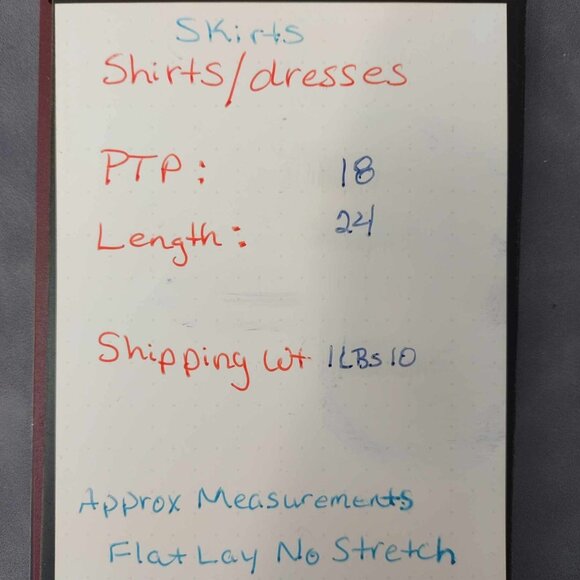 Skirts
Shirts/dresses
PTP: 18
Length: 24
Shipping Wt 1LBs10
Approx Measurements
Flat Lay No Stretch